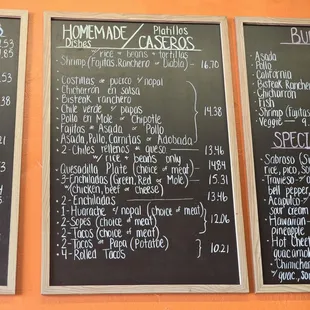 3.85
HOMEMADE / Platillos
Dishes CASEROS
w/rice + beans + tortillas
Shrimp (Fajitas, Ranchero or Diabla) - 16.70
· Costillas or puerco w/nopal
· Chicharron en salsa
· Bisteak ranchero
· Chile verde w/papas
· Pollo en Mole or Chipotle
· Fajitas or Asada or Pollo
· Asada, Pollo, Carnitas or Adobada
14.38
· 2-Chiles rellenos or queso - 13.46
w/rice + beans only
· Quesadilla Plate (choice of meat) 14.84
· 3-Enchiladas (Green, Red or Mole) - 15.31
w/(chicken, beef or cheese)
· 2-Enchiladas 13.46
· 1-Huarache w/nopal (choice of meat)
· 2-Sopes (choice of meat)
12.06
· 2-Tacos (choice of meat)
· 2-Tacos or Papa (Potatoe)
· 4-Rolled Tacos
10.21
BU
· Asada
· Pollo
· California
· Bisteak Ranchero
· Chicharron
· Fish
· Shrimp
· Veggie
SPECI
· Sabroso
rice, pico,
· Travieso
bell pepper,
· Acapulco
sour cream
· Hawaiian
pineapple
· Hot Cheeto
guac
· Chimichanga
w/guac, sour